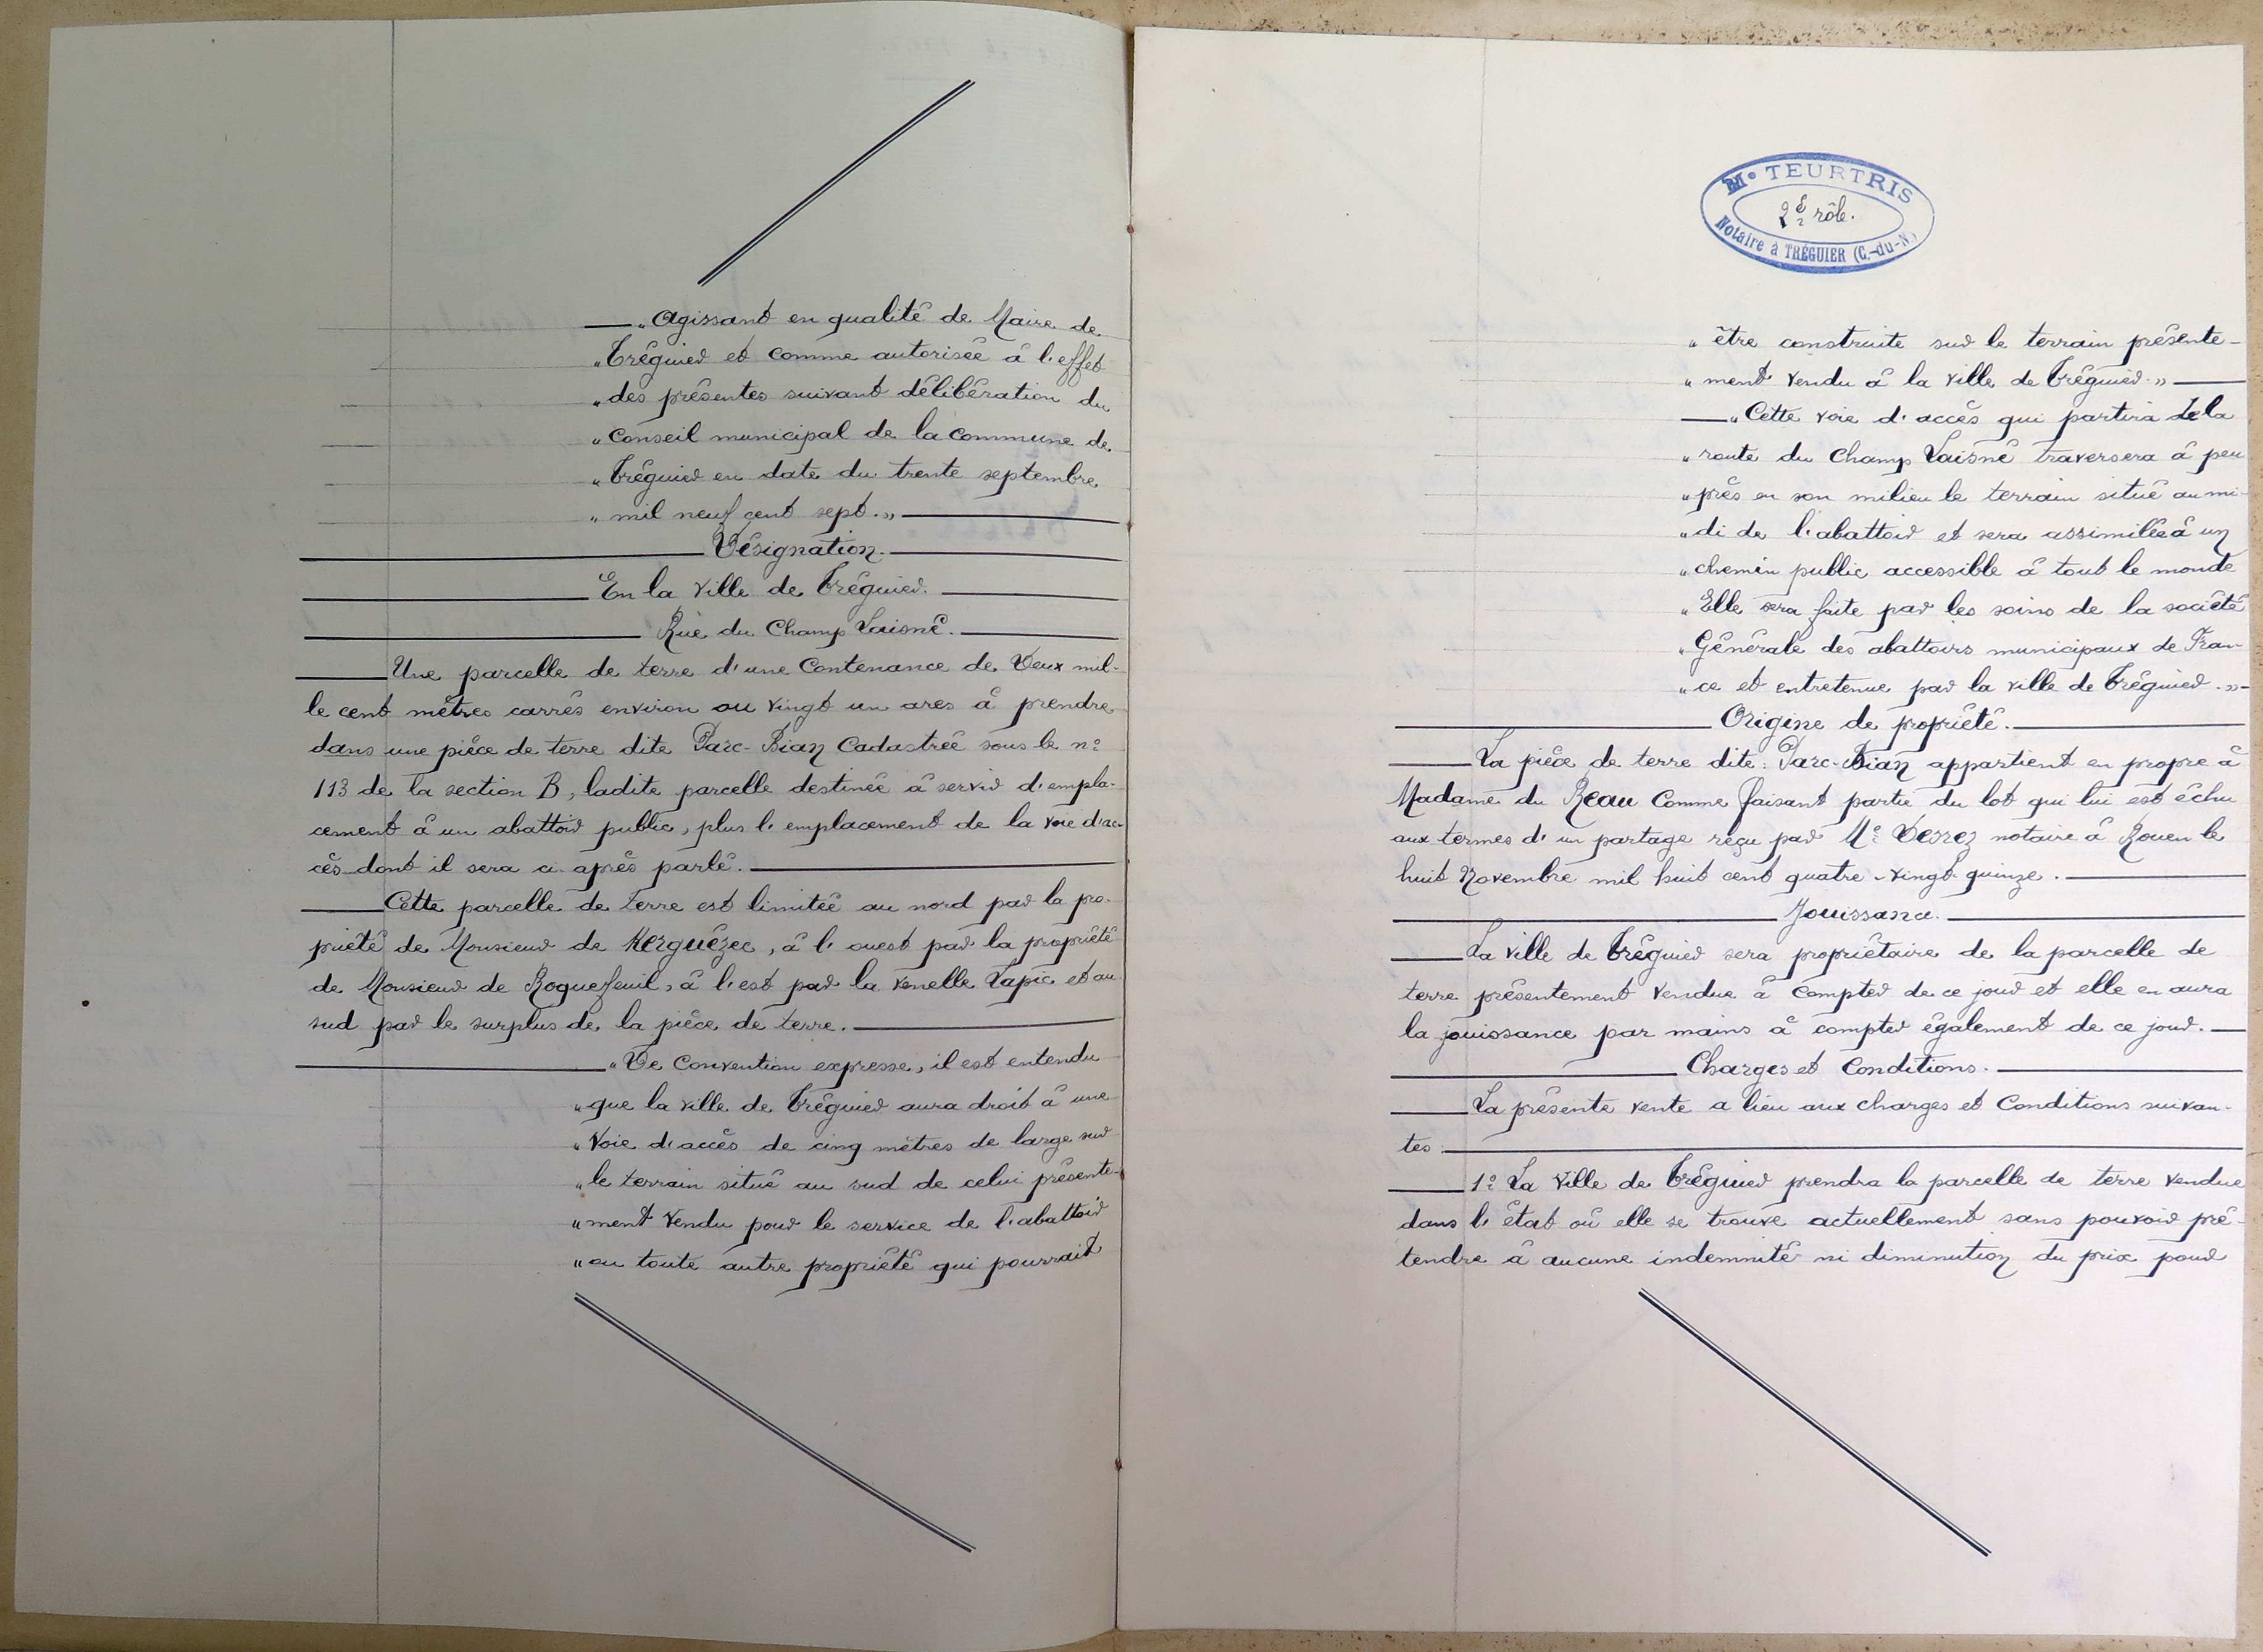 „ Agissant en qualité de Maire de
„ Tréguier et comme autorisée à l'effet
„ des présentes suivant délibération du
„ Conseil municipal de la Commune de
„ Tréguier en date du trente septembre
„ mil neuf cent sept. »
Désignation.
En la ville de Tréguier.
Rue du Champ Laisné.
Une parcelle de terre d'une Contenance de Deux mil-
le cent mètres carrés environ ou vingt un ares à prendre
dans une pièce de terre dite Parc-Bian Cadastrée sous le nº
113 de la section B, ladite parcelle destinée à servir d'empla-
cement à un abattoir public, plus l'emplacement de la voie d'ac-
cès dont il sera ci après parlé.
Cette parcelle de terre est limitée au nord par la pro-
priété de Monsieur de Kerguézec, à l'ouest par la propriété
de Monsieur de Roquefeuil, à l'est par la venelle Lapic et au
sud par le surplus de la pièce de terre.
„ De Convention expresse, il est entendu
„ que la ville de Tréguier aura droit à une
„ voie d'accès de cinq mètres de large sur
„ le terrain situé au sud de celui présente-
„ ment vendu pour le service de l'abattoir
„ ou toute autre propriété qui pourrait
Me TEURTRIS
2E rôle.
Notaire à TRÉGUIER (C.-du-N.)
„ être construite sur le terrain présente-
„ ment vendu à la ville de Tréguier. »
„ Cette voie d'accès qui partira de la
„ route du Champ Laisné traversera à peu
„ près en son milieu le terrain situé au mi-
„ di de l'abattoir et sera assimilée à un
„ chemin public accessible à tout le monde
„ Elle sera faite par les soins de la société
„ Générale des abattoirs municipaux de Fran-
„ ce et entretenue par la ville de Tréguier. »
Origine de propriété.
La pièce de terre dite : Parc-Bian appartient en propre à
Madame du Reau Comme faisant partie du lot qui lui est échu
aux termes d'un partage reçu par Me Verrez notaire à Rouen le
huit Novembre mil huit cent quatre-vingt-quinze.
Jouissance.
La ville de Tréguier sera propriétaire de la parcelle de
terre présentement vendue à compter de ce jour et elle en aura
la jouissance par mains à compter également de ce jour.
Charges et Conditions.
La présente vente a lieu aux charges et Conditions suivan-
tes :
1º La ville de Tréguier prendra la parcelle de terre vendue
dans l'état où elle se trouve actuellement sans pouvoir pré-
tendre à aucune indemnité ni diminution du prix pour